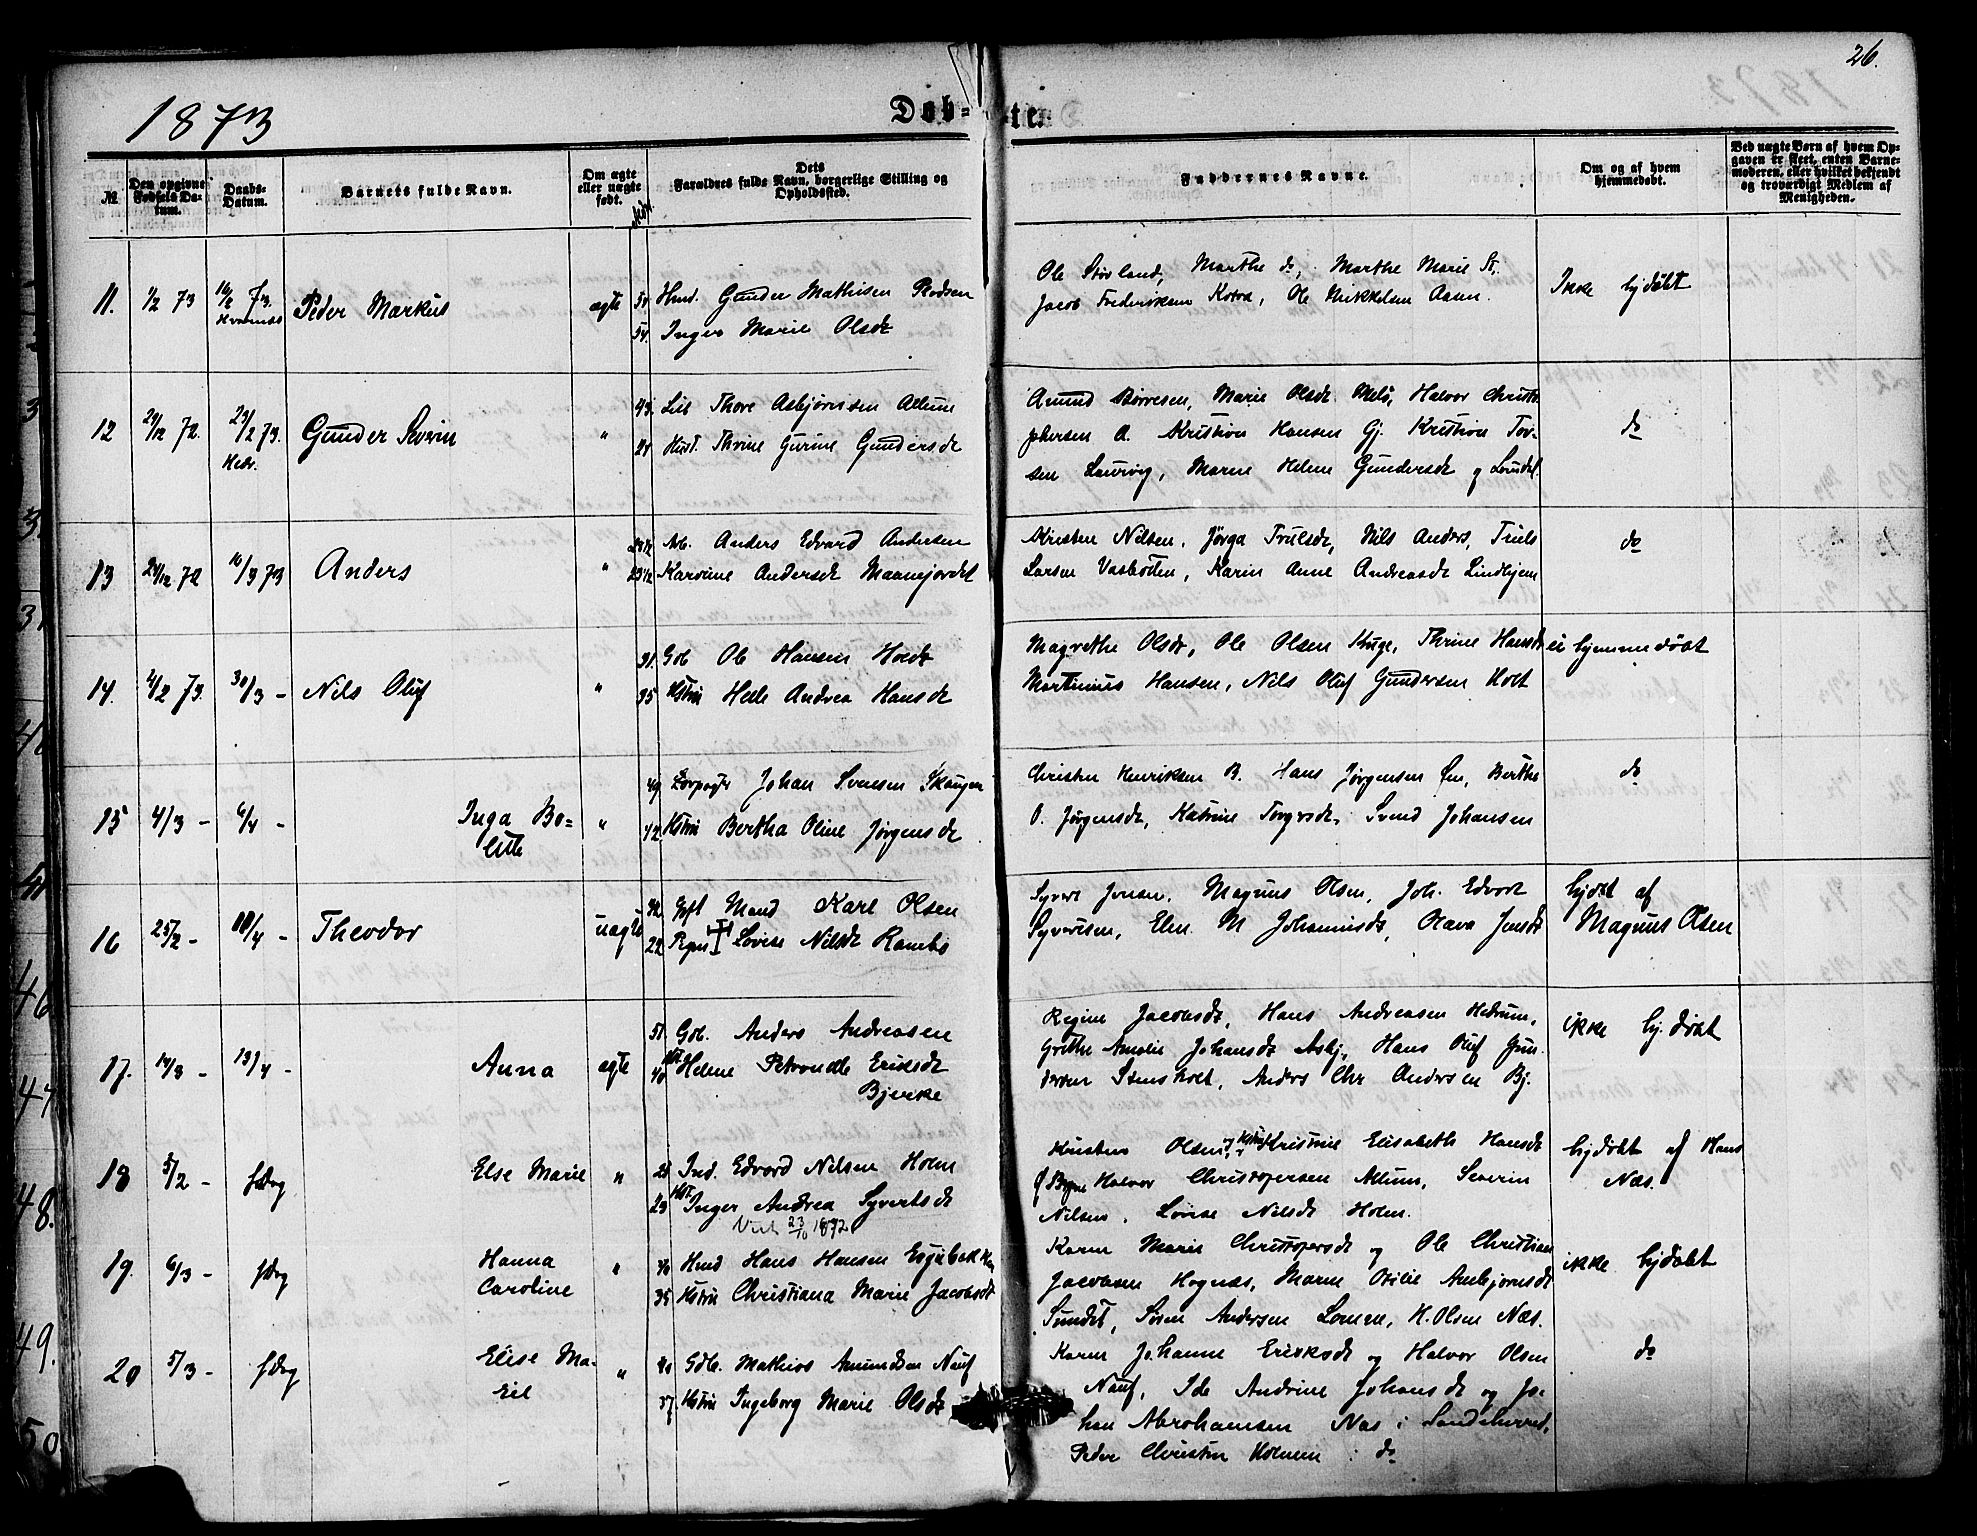 26.
1873
Døb-te
№
Den opgivne Fødsels Datum.
Daabs-Datum.
Barnets fulde Navn.
Om ægte eller uægte født.
Dets Forældres fulde Navn, borgerlige Stilling og Opholdssted.
Faddernes Navne.
Om og af hvem hjemmedøbt.
Ved uægte Børn af hvem Opgaven er skeet, enten Barnemoderen, eller hvilket bekjendt og troværdigt Medlem af Menigheden.
11. 1/2 73 16/2 73. Peder Markus ægte Hmd. Gunder Mathisen
Inger Marie Olsdt
Ole Størland, Marthe do, Marthe Marie St,
Jacob Frederiksen, Ole Mikkelsen Aasen.
Ikke hjdøbt
12 29/12 72. 23/2 73. Hedr. Gunder Severin " 43. Thore Asbjørnsen Allum
24 Hust. Thrine Gurine Gundersdt
Amund Børresen, Marie Olsdt. Melø, Halvor Christo-
phersen A. Kristian Hansen Gj. Kristian Tor-
sen Laurvig, Maren Helene Gundersdt
do
13 24/12 72 16/3 73 Anders " Arb. Anders Edvard Andersen
23 1/2 Karoline Andersdt Maanejordet
Kristen Nilsen, Jørga Trulsdt, Nils Anders, Truls
Larsen Vasbotten, Karin Anne Andreasdt Lindhjem
do
14. 2/2 73. 30/3 - Nils Oluf " 31. Gb Ole Hansen Holdt
35 Hstru Helle Andrea Hansdt
Magrethe Olsdt, Ole Olsen Kruge, Thrine Hansdt
Martinius Hansen, Nils Oluf Gundersen Holt
ei hjemmedøbt
15 4/3 - 6/4 - Inga Bo-
lette " 49 Johan Svensen Skaugen
42 Hstru Bertha Oline Jørgensdt
Christen Henriksen B. Hans Jørgensen Øen, Berthe
O. Jørgensdt, Katrine Torgrsdt, Svend Johansen
do
16 25/2 - /4 - Theodor uægte Gift Mand Karl Olsen
22 Pgen Lovise Nilsdt Rambo
Syvert Jensen, Magnus Olsen, Joh. Edvard
Syvertsen, Elen M Johannesdt, Olava Jensdt
hjdøbt af
Magnus Olsen
17. 14/3 - 13/4 - Anna ægte 51. Gb. Anders Andreasen
40 Helene Petronelle Eriksdt
Bjerke
Regine Jacobsdt, Hans Andreasen Hedrum,
Grethe Amalie Johansdt Asbj, Hans Oluf Gun-
dersen Stensholt, Anders Chr Andersen Bj.
ikke hj. døbt
18 5/2 - s Dag Else Marie " 28 Ind. Edvard Nilsen Holm
23 Hst Inger Andrea Syvertsdt
Viet 23/10 1872
Kristen Olsen og Hstru Kristine Elisabeth Hansdt
Halvor Christophersen Allum, Severin
Nilsen, Lovise Nilsdt Holm.
hjdøbt af Hans
Næs.
19. 6/3 - s Dag Hanna
Caroline " 40 Hmd Hans Hansen
35 Hstru Christiana Marie Jacobsdt
Karen Marie Christophersdt og Ole Christian
Jacobsen Hognæs, Maren Otilie Ambjørnsdt
Sundet, Søren Andersen Lomme, H. Olsen Næs.
ikke hjdøbt
20 5/3 - s Dag Elise Ma-
" 40 Gdb. Mathias Amundsen Nauf
37. Hstru Ingeborg Marie Olsdt
Karen Johanne Eriksdt og Halvor Olsen
Nauf, Ida Andrine Johansdt og Jo-
han Abrahamsen Næs i Sandeherred,
Peder Christen Holmen i do
do